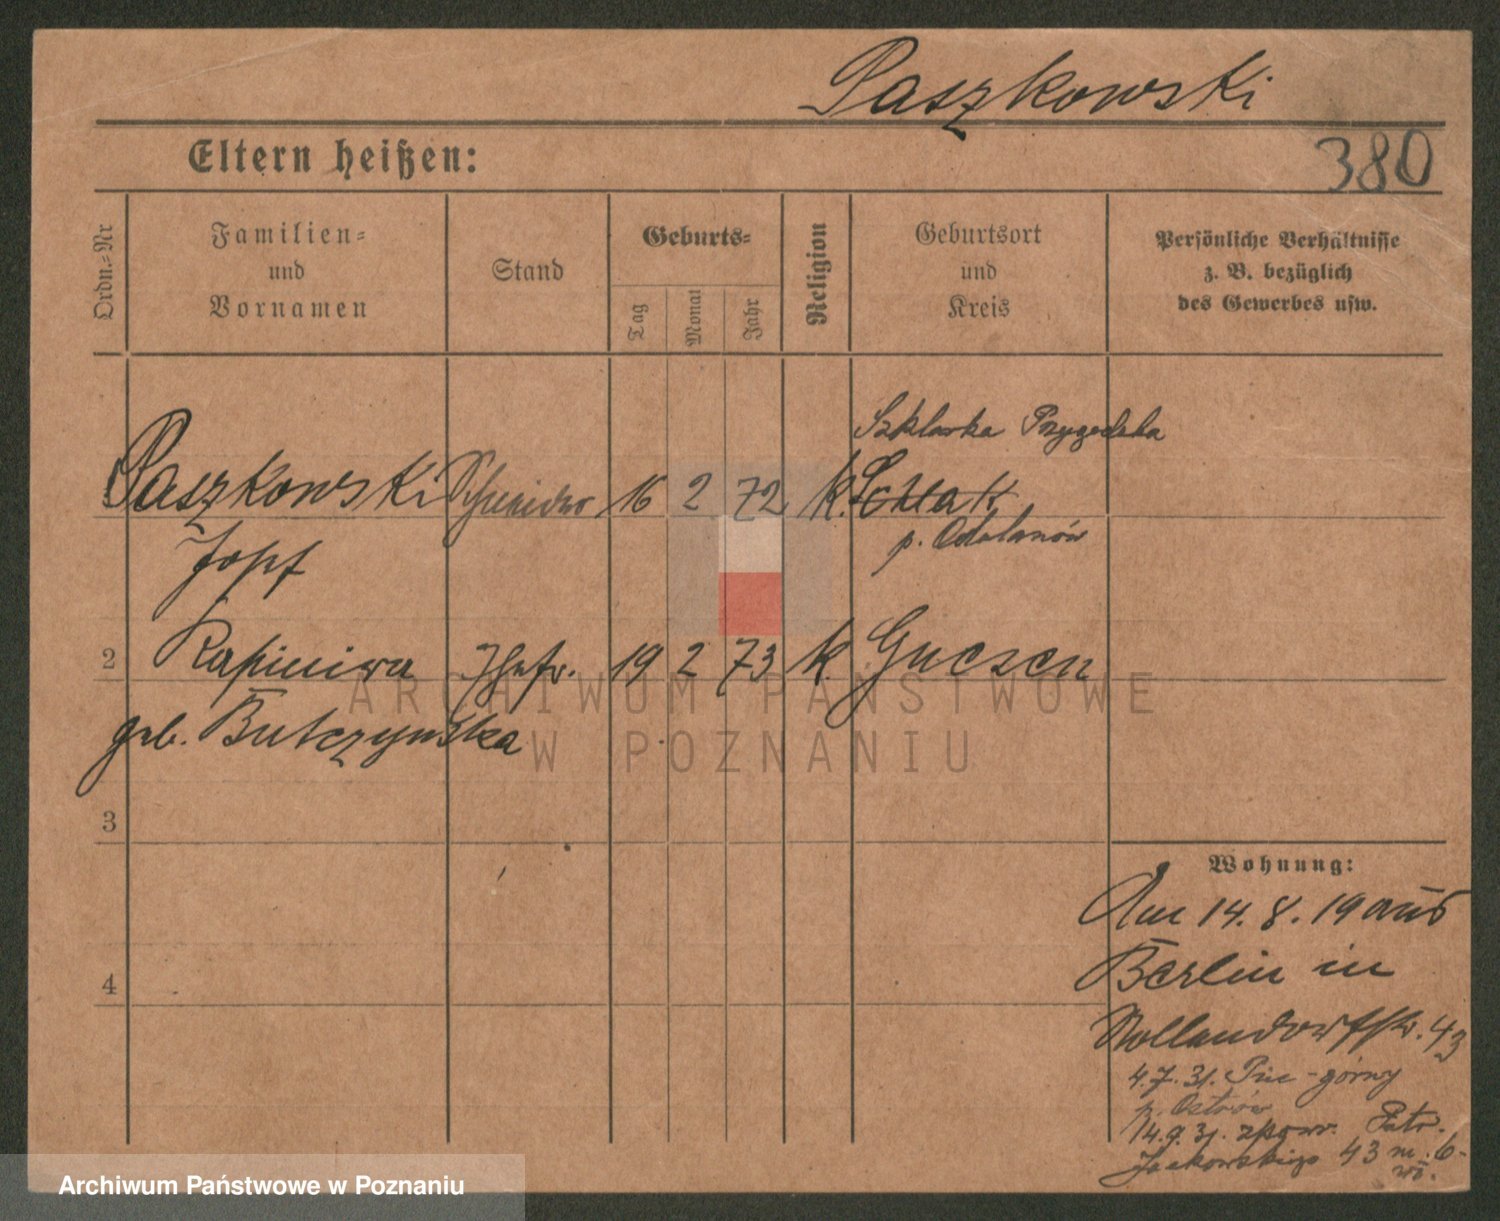 Paszkowski
380
Eltern heißen:
Ordn.-Nr
Familien-
und
Vornamen
Stand
Geburts-
Tag
Monat
Jahr
Religion
Geburtsort
und
Kreis
Persönliche Verhältnisse
z. B. bezüglich
des Gewerbes usw.
Szklarka Przygodzka
Paszkowski Schneider 16 2 72 k.
p. Odolanów
Josef
2 19 2 73 k. Gnesen
geb.
3
4
Wohnung:
Am 14. 8. 19 aus
Berlin in
43
4.7.31. górny
p. Ostrów
14.9.31. zpow. Patr.
Jackowskiego 43 m. 6.
ARCHIWUM PAŃSTWOWE
W POZNANIU
Archiwum Państwowe w Poznaniu